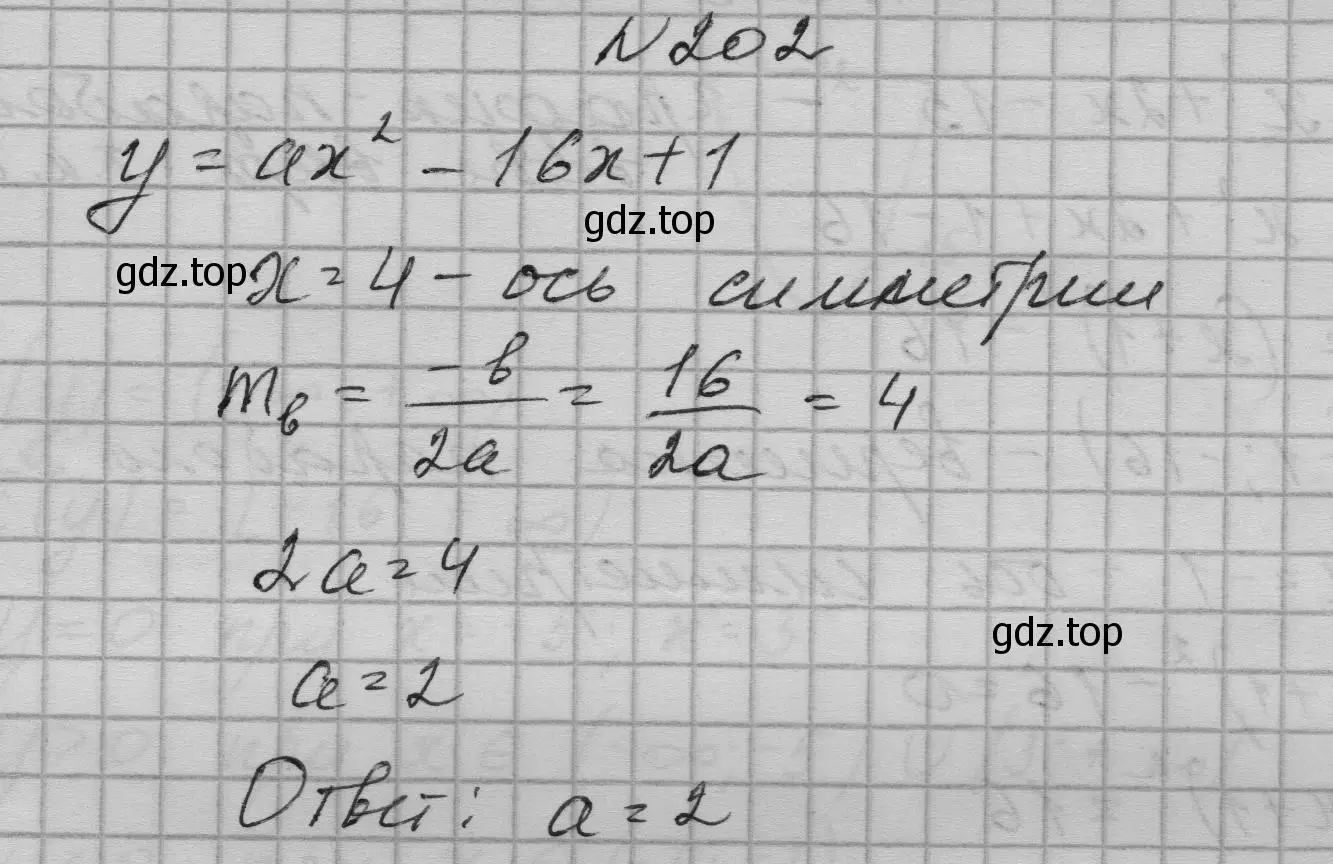 N 202
y = ax² - 16x + 1
gdz.top
gdz.top
x = 4 - ось симметрии
m_в = -в/2a = 16/2a = 4
2a = 4
gdz.top
a = 2
Ответ: a = 2